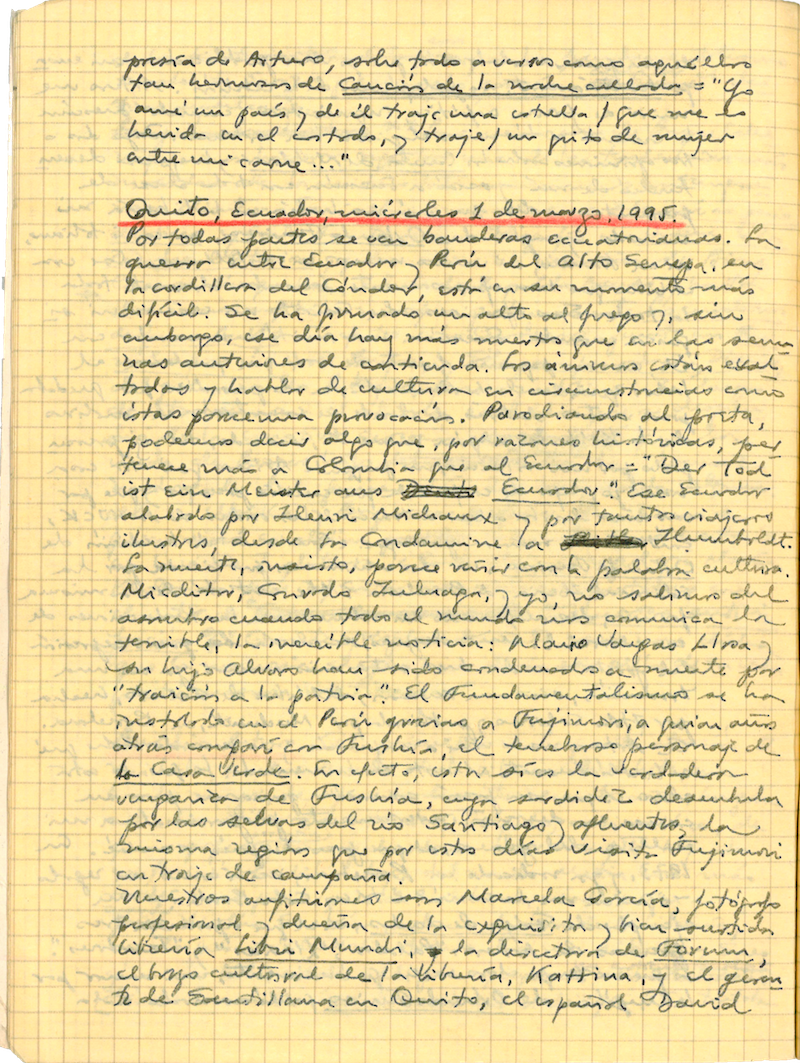 poesía de Arturo, sobre todo a versos como aquéllos
tan hermosos de Canción de la noche callada = "Yo
amé un país y de él traje una estrella / que me es
herida en el costado, y traje / un grito de mujer
entre mi carne..."
Quito, Ecuador, miércoles 1 de marzo, 1995.
Por todas partes se ven banderas ecuatorianas. La
guerra entre Ecuador y Perú del Alto Senepa, en
la cordillera del Cóndor, está en su momento más
difícil. Se ha firmado un alto al fuego y, sin
embargo, ese día hay más muertos que en las sema
nas anteriores de contienda. Los ánimos están exal
tados y hablar de cultura en circunstancias como
éstas parece una provocación. Parodiando al poeta,
podemos decir algo que, por razones históricas, per
tenece más a Colombia que al Ecuador = "Der Tod
ist ein Meister aus Ecuador". Ese Ecuador
alabado por Henri Michaux y por tantos viajeros
ilustres, desde La Condamine a Humboldt.
La muerte, insisto, parece reñir con la palabra cultura.
Mi editor, Conrado Zuluaga, y yo, no salimos del
asombro cuando todo el mundo nos comunica la
terrible, la increíble noticia: Mario Vargas Llosa y
su hijo Alvaro han sido condenados a muerte por
"traición a la patria". El Fundamentalismo se ha
instalado en el Perú gracias a Fujimori, a quien años
atrás comparé con Fushía, el tenebroso personaje de
La Casa Verde. En efecto, esta sí es la verdadera
venganza de Fushía, cuya sordidez deambula
por las selvas del río Santiago y afluentes, la
misma región que por estos días visita Fujimori
en traje de campaña.
Nuestros anfitriones son Marcela García, fotógrafa
profesional y dueña de la exquisita y bien surtida
librería Libri Mundi, la directora de Forum,
el brazo cultural de la librería, Kattina, y el geren
te de Santillana en Quito, el español David